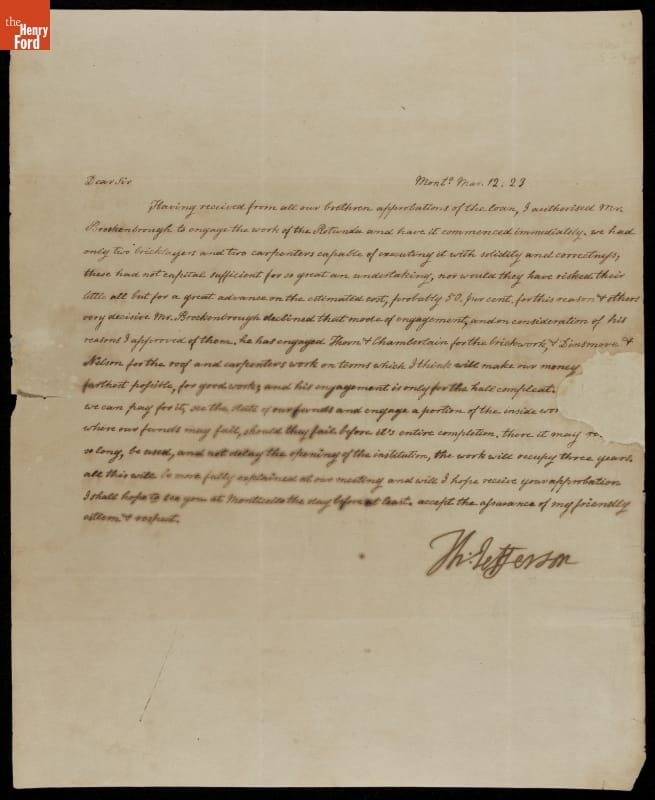 the
Henry
Ford
Dear Sir Montº Mar. 12. 23
Having received from all our brethren approbations of the loan, I authorised Mr.
Brockenbrough to engage the work of the Rotunda and have it commenced immediately. we had
only two bricklayers and two carpenters capable of executing it with solidity and correctness,
these had not capital sufficient for so great an undertaking, nor would they have risked their
little all but for a great advance on the estimated cost, probably 50. per cent. for this reason & others
very decisive Mr. Brockenbrough declined that mode of engagement, and on consideration of his
reasons I approved of them. he has engaged Thorn & Chamberlain for the brickwork, & Dinsmore &
Nelson for the roof and carpenters work on terms which I think will make our money
farthest possible, for good work; and his engagement is only for the hull compleat.
we can pay for it, see the state of our funds and engage a portion of the inside wor
where our funds may fail, should they fail before it's entire completion. there it may re
so long, be used, and not delay the opening of the institution, the work will occupy three years.
all this will be more fully explained at our meeting and will I hope receive your approbation
I shall hope to see you at Monticello the day before at least. accept the assurance of my friendly
esteem & respect.
Th: Jefferson